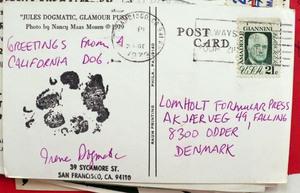 "JULES DOGMATIC, GLAMOUR PUSS"
Photo by Nancy Maas Mosen @ 1979
GREETINGS FROM A
CALIFORNIA DOG.
Irene Dogmatic
39 SYCAMORE ST.
SAN FRANCISCO, CA. 94110
POST
CARD
ALWAYS
GIANNINI
USA 21c
LOMHOLT FORMULAR PRESS
AKJÆRVEG 49, FALLING
8300 ODDER
DENMARK